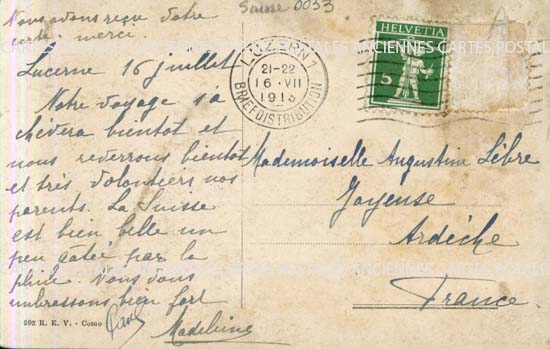 Nous avons reçu votre
carte. merci.
Suisse 0053
Lucerne 16 juillet
Notre voyage s'a
chévera bientot et
nous reverrons bientot
et très volontiers nos
parents. La Suisse
est bien belle un
peu gâtée par la
pluie. Nous vous
embrassons bien fort
Madeleine
595 R. E. V. - Como
LUZERN 1
21-22
16. VII
1913
BRIEFDISTRIBUTION
HELVETIA
5
Mademoiselle Augustine Lèbre
Joyeuse
Ardèche
France.
ANCIENNES CARTES POSTALES